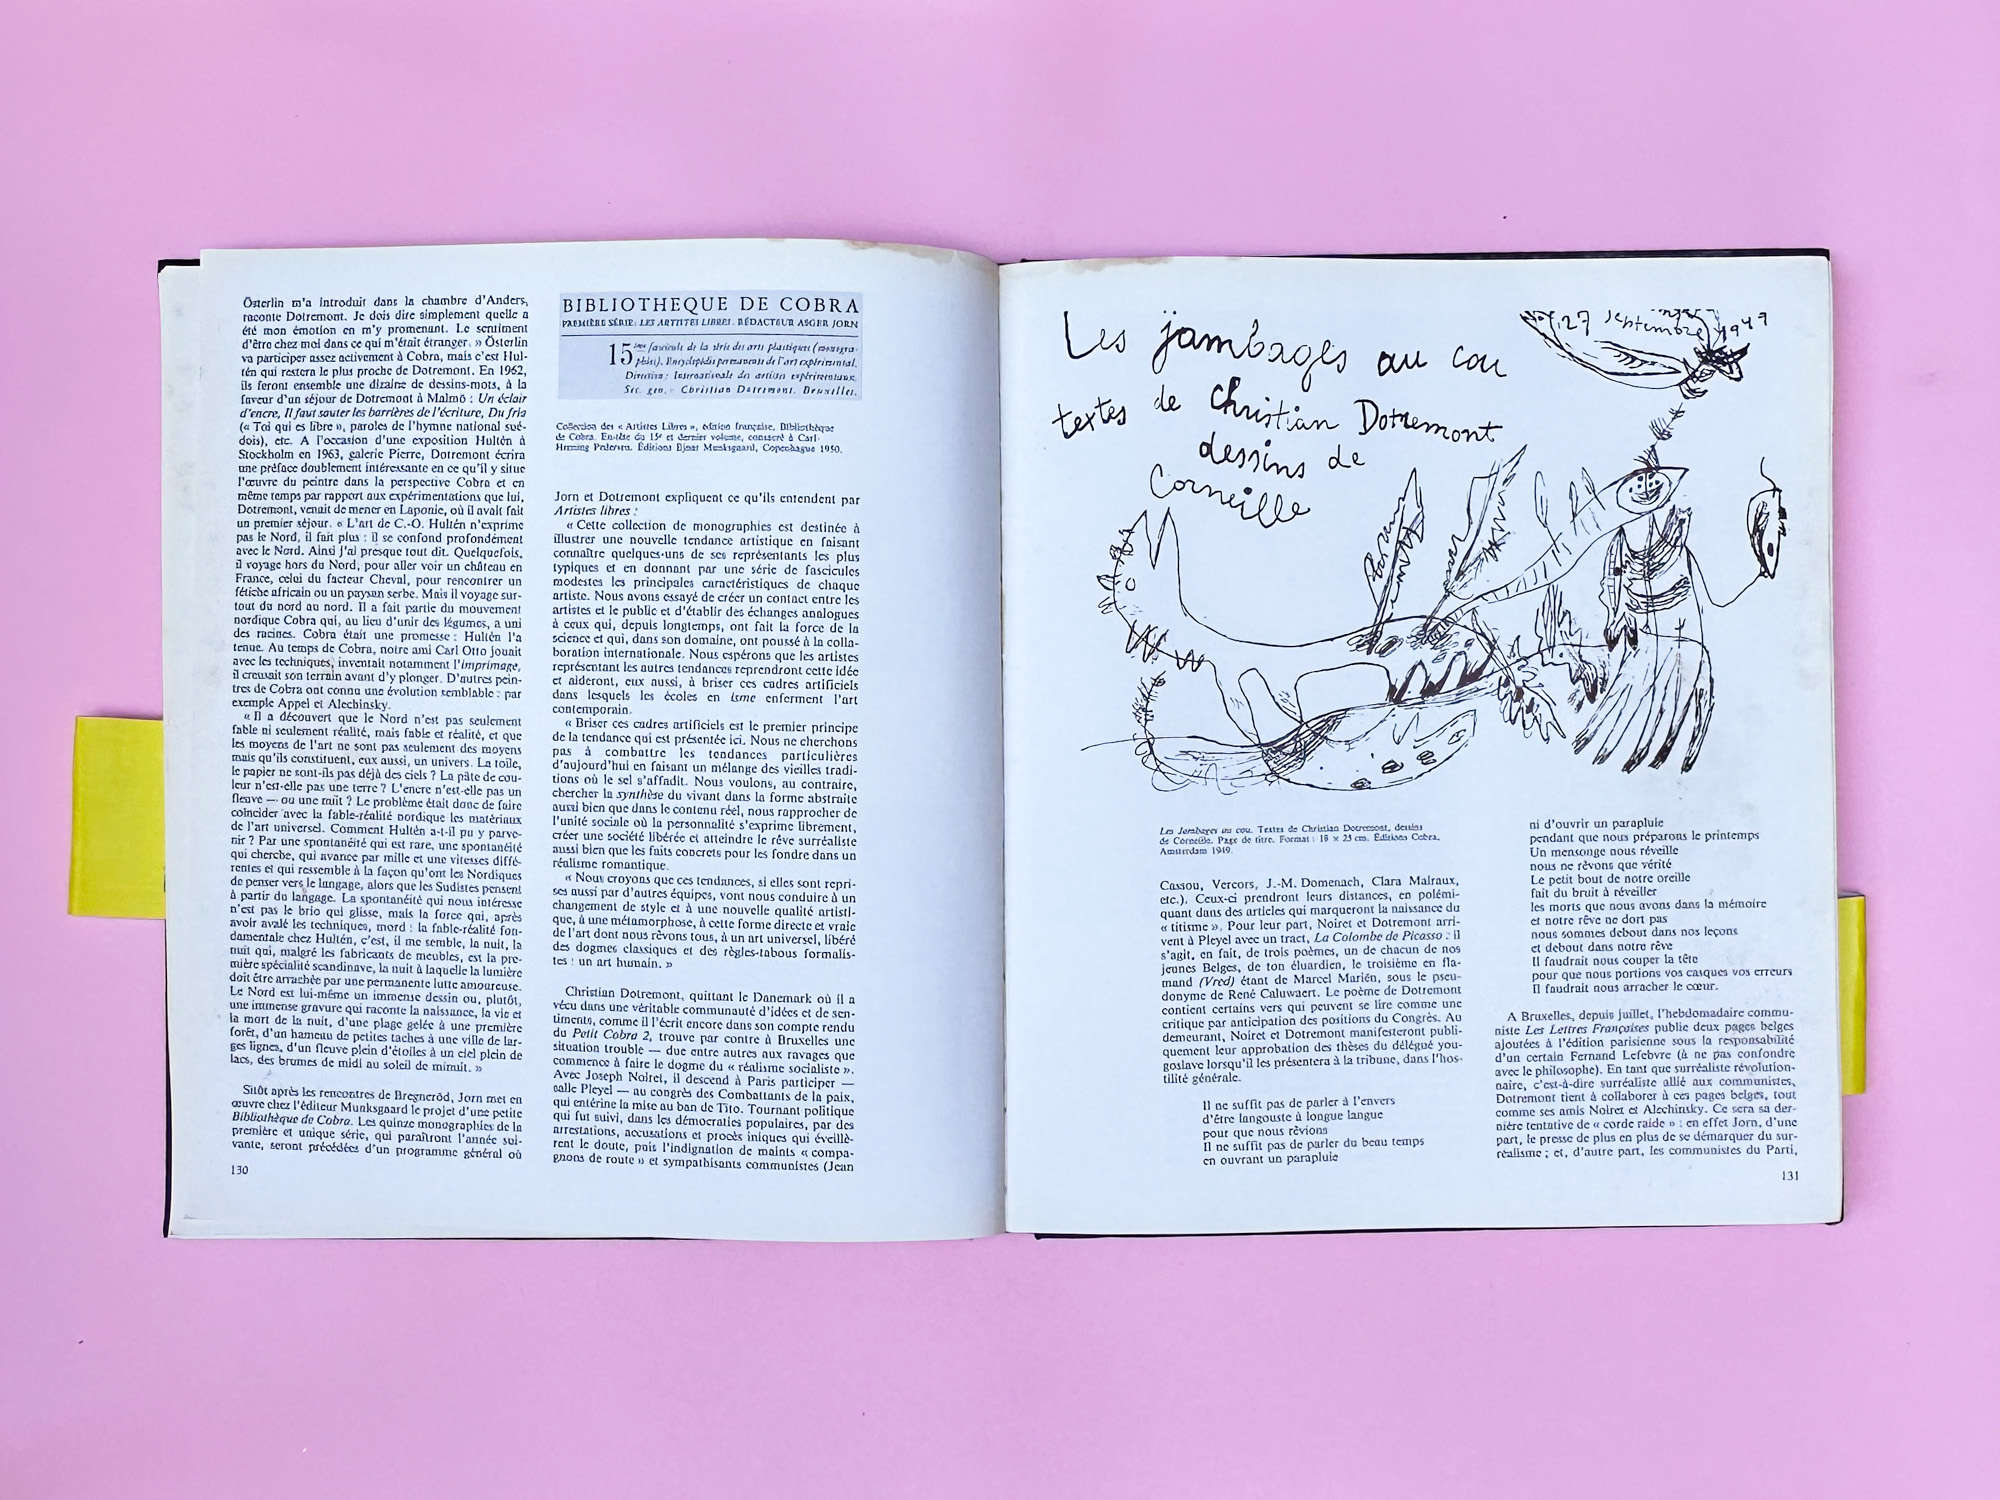 Österlin m'a introduit dans la chambre d'Anders,
raconte Dotremont. Je dois dire simplement quelle a
été mon émotion en m'y promenant. Le sentiment
d'être chez moi dans ce qui m'était étranger. » Österlin
va participer assez activement à Cobra, mais c'est Hul-
tén qui restera le plus proche de Dotremont. En 1962,
ils feront ensemble une dizaine de dessins-mots, à la
faveur d'un séjour de Dotremont à Malmö : Un éclair
d'encre, Il faut sauter les barrières de l'écriture, Du fria
(« Toi qui es libre », paroles de l'hymne national sué-
dois), etc. A l'occasion d'une exposition Hultén à
Stockholm en 1963, galerie Pierre, Dotremont écrira
une préface doublement intéressante en ce qu'il y situe
l'œuvre du peintre dans la perspective Cobra et en
même temps par rapport aux expérimentations que lui,
Dotremont, venait de mener en Laponie, où il avait fait
un premier séjour. « L'art de C.-O. Hultén n'exprime
pas le Nord, il fait plus : il se confond profondément
avec le Nord. Ainsi j'ai presque tout dit. Quelquefois,
il voyage hors du Nord, pour aller voir un château en
France, celui du facteur Cheval, pour rencontrer un
fétiche africain ou un paysan serbe. Mais il voyage sur-
tout du nord au nord. Il a fait partie du mouvement
nordique Cobra qui, au lieu d'unir des légumes, a uni
des racines. Cobra était une promesse : Hultén l'a
tenue. Au temps de Cobra, notre ami Carl Otto jouait
avec les techniques, inventait notamment l'imprimage,
il creusait son terrain avant d'y plonger. D'autres pein-
tres de Cobra ont connu une évolution semblable : par
exemple Appel et Alechinsky.
« Il a découvert que le Nord n'est pas seulement
fable ni seulement réalité, mais fable et réalité, et que
les moyens de l'art ne sont pas seulement des moyens
mais qu'ils constituent, eux aussi, un univers. La toile,
le papier ne sont-ils pas déjà des ciels ? La pâte de cou-
leur n'est-elle pas une terre ? L'encre n'est-elle pas un
fleuve — ou une nuit ? Le problème était donc de faire
coïncider avec la fable-réalité nordique les matériaux
de l'art universel. Comment Hultén a-t-il pu y parve-
nir ? Par une spontanéité qui est rare, une spontanéité
qui cherche, qui avance par mille et une vitesses diffé-
rentes et qui ressemble à la façon qu'ont les Nordiques
de penser vers le langage, alors que les Sudistes pensent
à partir du langage. La spontanéité qui nous intéresse
n'est pas le brio qui glisse, mais la force qui, après
avoir avalé les techniques, mord : la fable-réalité fon-
damentale chez Hultén, c'est, il me semble, la nuit, la
nuit qui, malgré les fabricants de meubles, est la pre-
mière spécialité scandinave, la nuit à laquelle la lumière
doit être arrachée par une permanente lutte amoureuse.
Le Nord est lui-même un immense dessin ou, plutôt,
une immense gravure qui raconte la naissance, la vie et
la mort de la nuit, d'une plage gelée à une première
forêt, d'un hameau de petites taches à une ville de lar-
ges lignes, d'un fleuve plein d'étoiles à un ciel plein de
lacs, des brumes de midi au soleil de minuit. »
Sitôt après les rencontres de Bregneröd, Jorn met en
œuvre chez l'éditeur Munksgaard le projet d'une petite
Bibliothèque de Cobra. Les quinze monographies de la
première et unique série, qui paraîtront l'année sui-
vante, seront précédées d'un programme général où
130
BIBLIOTHEQUE DE COBRA
PREMIÈRE SÉRIE: LES ARTISTES LIBRES. RÉDACTEUR ASGER JORN
15ème fascicule de la série des arts plastiques (monogra-
phies). Encyclopédie permanente de l'art expérimental.
Direction: Internationale des artistes expérimentaux.
Sec. gen.: Christian Dotremont, Bruxelles.
Collection des « Artistes Libres », édition française, Bibliothèque
de Cobra. En-tête du 15e et dernier volume, consacré à Carl-
Henning Pedersen. Éditions Ejnar Munksgaard, Copenhague 1950.
Jorn et Dotremont expliquent ce qu'ils entendent par
Artistes libres :
« Cette collection de monographies est destinée à
illustrer une nouvelle tendance artistique en faisant
connaître quelques-uns de ses représentants les plus
typiques et en donnant par une série de fascicules
modestes les principales caractéristiques de chaque
artiste. Nous avons essayé de créer un contact entre les
artistes et le public et d'établir des échanges analogues
à ceux qui, depuis longtemps, ont fait la force de la
science et qui, dans son domaine, ont poussé à la colla-
boration internationale. Nous espérons que les artistes
représentant les autres tendances reprendront cette idée
et aideront, eux aussi, à briser ces cadres artificiels
dans lesquels les écoles en isme enferment l'art
contemporain.
« Briser ces cadres artificiels est le premier principe
de la tendance qui est présentée ici. Nous ne cherchons
pas à combattre les tendances particulières
d'aujourd'hui en faisant un mélange des vieilles tradi-
tions où le sel s'affadit. Nous voulons, au contraire,
chercher la synthèse du vivant dans la forme abstraite
aussi bien que dans le contenu réel, nous rapprocher de
l'unité sociale où la personnalité s'exprime librement,
créer une société libérée et atteindre le rêve surréaliste
aussi bien que les faits concrets pour les fondre dans un
réalisme romantique.
« Nous croyons que ces tendances, si elles sont repri-
ses aussi par d'autres équipes, vont nous conduire à un
changement de style et à une nouvelle qualité artisti-
que, à une métamorphose, à cette forme directe et vraie
de l'art dont nous rêvons tous, à un art universel, libéré
des dogmes classiques et des règles-tabous formalis-
tes : un art humain. »
Christian Dotremont, quittant le Danemark où il a
vécu dans une véritable communauté d'idées et de sen-
timents, comme il l'écrit encore dans son compte rendu
du Petit Cobra 2, trouve par contre à Bruxelles une
situation trouble — due entre autres aux ravages que
commence à faire le dogme du « réalisme socialiste ».
Avec Joseph Noiret, il descend à Paris participer —
salle Pleyel — au congrès des Combattants de la paix,
qui entérine la mise au ban de Tito. Tournant politique
qui fut suivi, dans les démocraties populaires, par des
arrestations, accusations et procès iniques qui éveillè-
rent le doute, puis l'indignation de maints « compa-
gnons de route » et sympathisants communistes (Jean
Les jambages au cou
textes de Christian Dotremont
dessins de
Corneille
27 septembre 1949
Les Jambages au cou. Textes de Christian Dotremont, dessins
de Corneille. Page de titre. Format : 19 × 25 cm. Éditions Cobra,
Amsterdam 1949.
Cassou, Vercors, J.-M. Domenach, Clara Malraux,
etc.). Ceux-ci prendront leurs distances, en polémi-
quant dans des articles qui marqueront la naissance du
« titisme ». Pour leur part, Noiret et Dotremont arri-
vent à Pleyel avec un tract, La Colombe de Picasso : il
s'agit, en fait, de trois poèmes, un de chacun de nos
jeunes Belges, de ton éluardien, le troisième en fla-
mand (Vred) étant de Marcel Mariën, sous le pseu-
donyme de René Caluwaert. Le poème de Dotremont
contient certains vers qui peuvent se lire comme une
critique par anticipation des positions du Congrès. Au
demeurant, Noiret et Dotremont manifesteront publi-
quement leur approbation des thèses du délégué you-
goslave lorsqu'il les présentera à la tribune, dans l'hos-
tilité générale.
Il ne suffit pas de parler à l'envers
d'être langouste à longue langue
pour que nous rêvions
Il ne suffit pas de parler du beau temps
en ouvrant un parapluie
ni d'ouvrir un parapluie
pendant que nous préparons le printemps
Un mensonge nous réveille
nous ne rêvons que vérité
Le petit bout de notre oreille
fait du bruit à réveiller
les morts que nous avons dans la mémoire
et notre rêve ne dort pas
nous sommes debout dans nos leçons
et debout dans notre rêve
Il faudrait nous couper la tête
pour que nous portions vos casques vos erreurs
Il faudrait nous arracher le cœur.
A Bruxelles, depuis juillet, l'hebdomadaire commu-
niste Les Lettres Françaises publie deux pages belges
ajoutées à l'édition parisienne sous la responsabilité
d'un certain Fernand Lefebvre (à ne pas confondre
avec le philosophe). En tant que surréaliste révolution-
naire, c'est-à-dire surréaliste allié aux communistes,
Dotremont tient à collaborer à ces pages belges, tout
comme ses amis Noiret et Alechinsky. Ce sera sa der-
nière tentative de « corde raide » : en effet Jorn, d'une
part, le presse de plus en plus de se démarquer du sur-
réalisme ; et, d'autre part, les communistes du Parti,
131